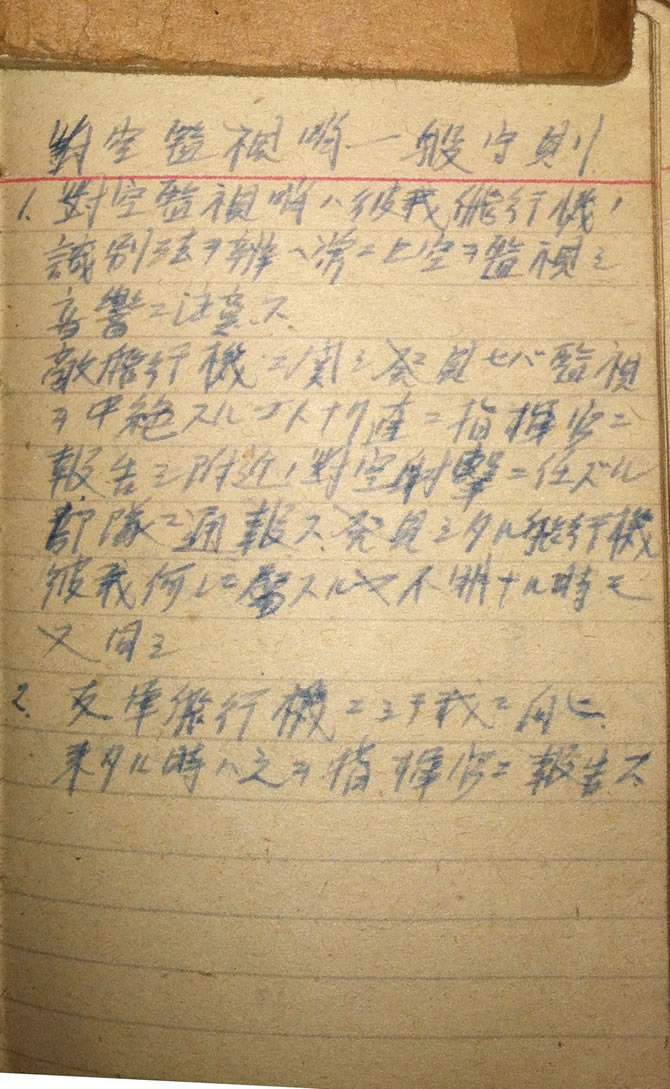 對空監視哨一般守則
1. 對空監視哨ハ彼我飛行機ノ
識別法ヲ辨ヘ常ニ上空ヲ監視シ
音響ニ注意ス
敵飛行機ニ関シ発見セバ監視
ヲ中絶スルコトナク直ニ指揮官ニ
報告シ附近ノ對空射撃ニ任ズル
部隊ニ通報ス発見シタル飛行機
彼我何レニ属スルヤ不明ナル時モ
又同シ
2. 友軍飛行機ニシテ我ニ向ヒ
来タル時ハ之ヲ指揮官ニ報告ス